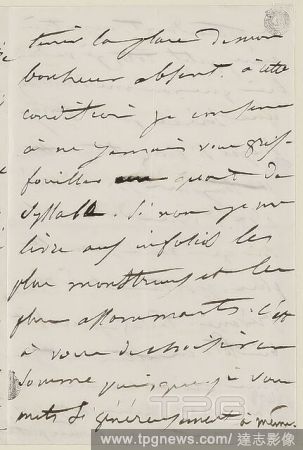 tenir la place de mon
bonheur absent. à cette
condition je
à ne jamais vous grif-
fouiller un quart de
syllabe. Sinon je me
livre aux infolios les
plus monstrueux et les
plus assommants. C'est
à vous de choisir en
somme puisque je vous
mets si généreusement à même.
TPG
www.tpgnews.com / 達志影像